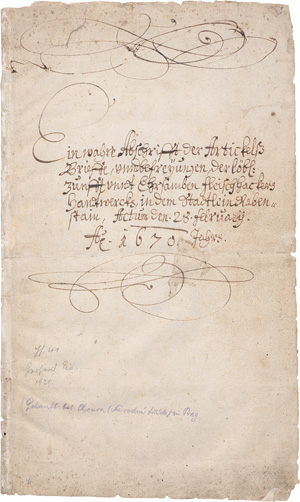 Ein wahre Abschrifft der Artickelß
Brieffe, vnnd befreyungen, der löbl:
Zunfft vnndt Ehrsamben fleischhackers
Handtwercks, in dem Stadtlein Raben-
stain, Actum den. 28. februarÿ.
Aõ. 1670 Jahrs.
1925
Gekauft bei
Prag